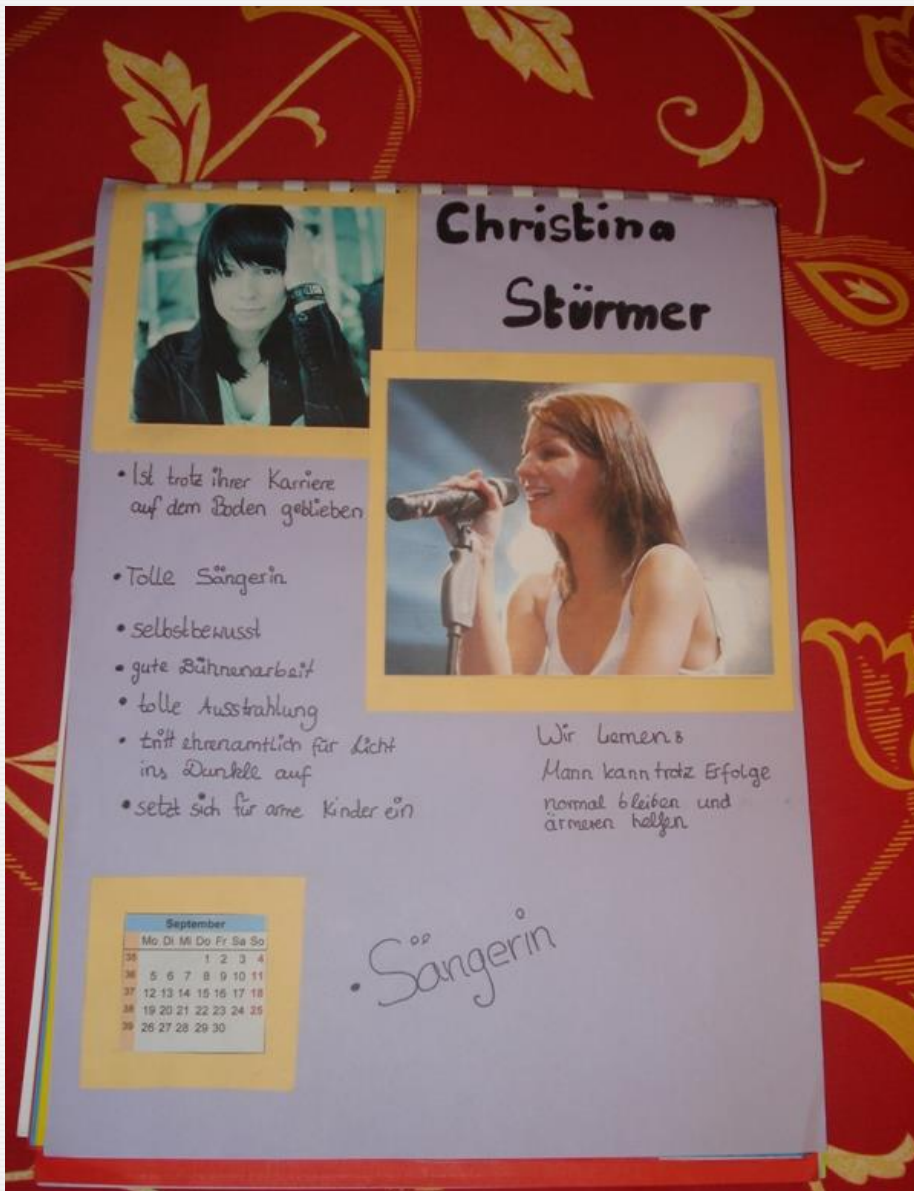 Christina
Stürmer
• Ist trotz ihrer Karriere
auf dem Boden geblieben
• Tolle Sängerin
• selbstbewusst
• gute Bühnenarbeit
• tolle Ausstrahlung
• tritt ehrenamtlich für Licht
ins Dunkle auf
• setzt sich für arme Kinder ein
Wir lernen:
Mann kann trotz Erfolge
normal bleiben und
ärmeren helfen
September
Mo Di Mi Do Fr Sa So
35 1 2 3 4
36 5 6 7 8 9 10 11
37 12 13 14 15 16 17 18
38 19 20 21 22 23 24 25
39 26 27 28 29 30
• Sängerin